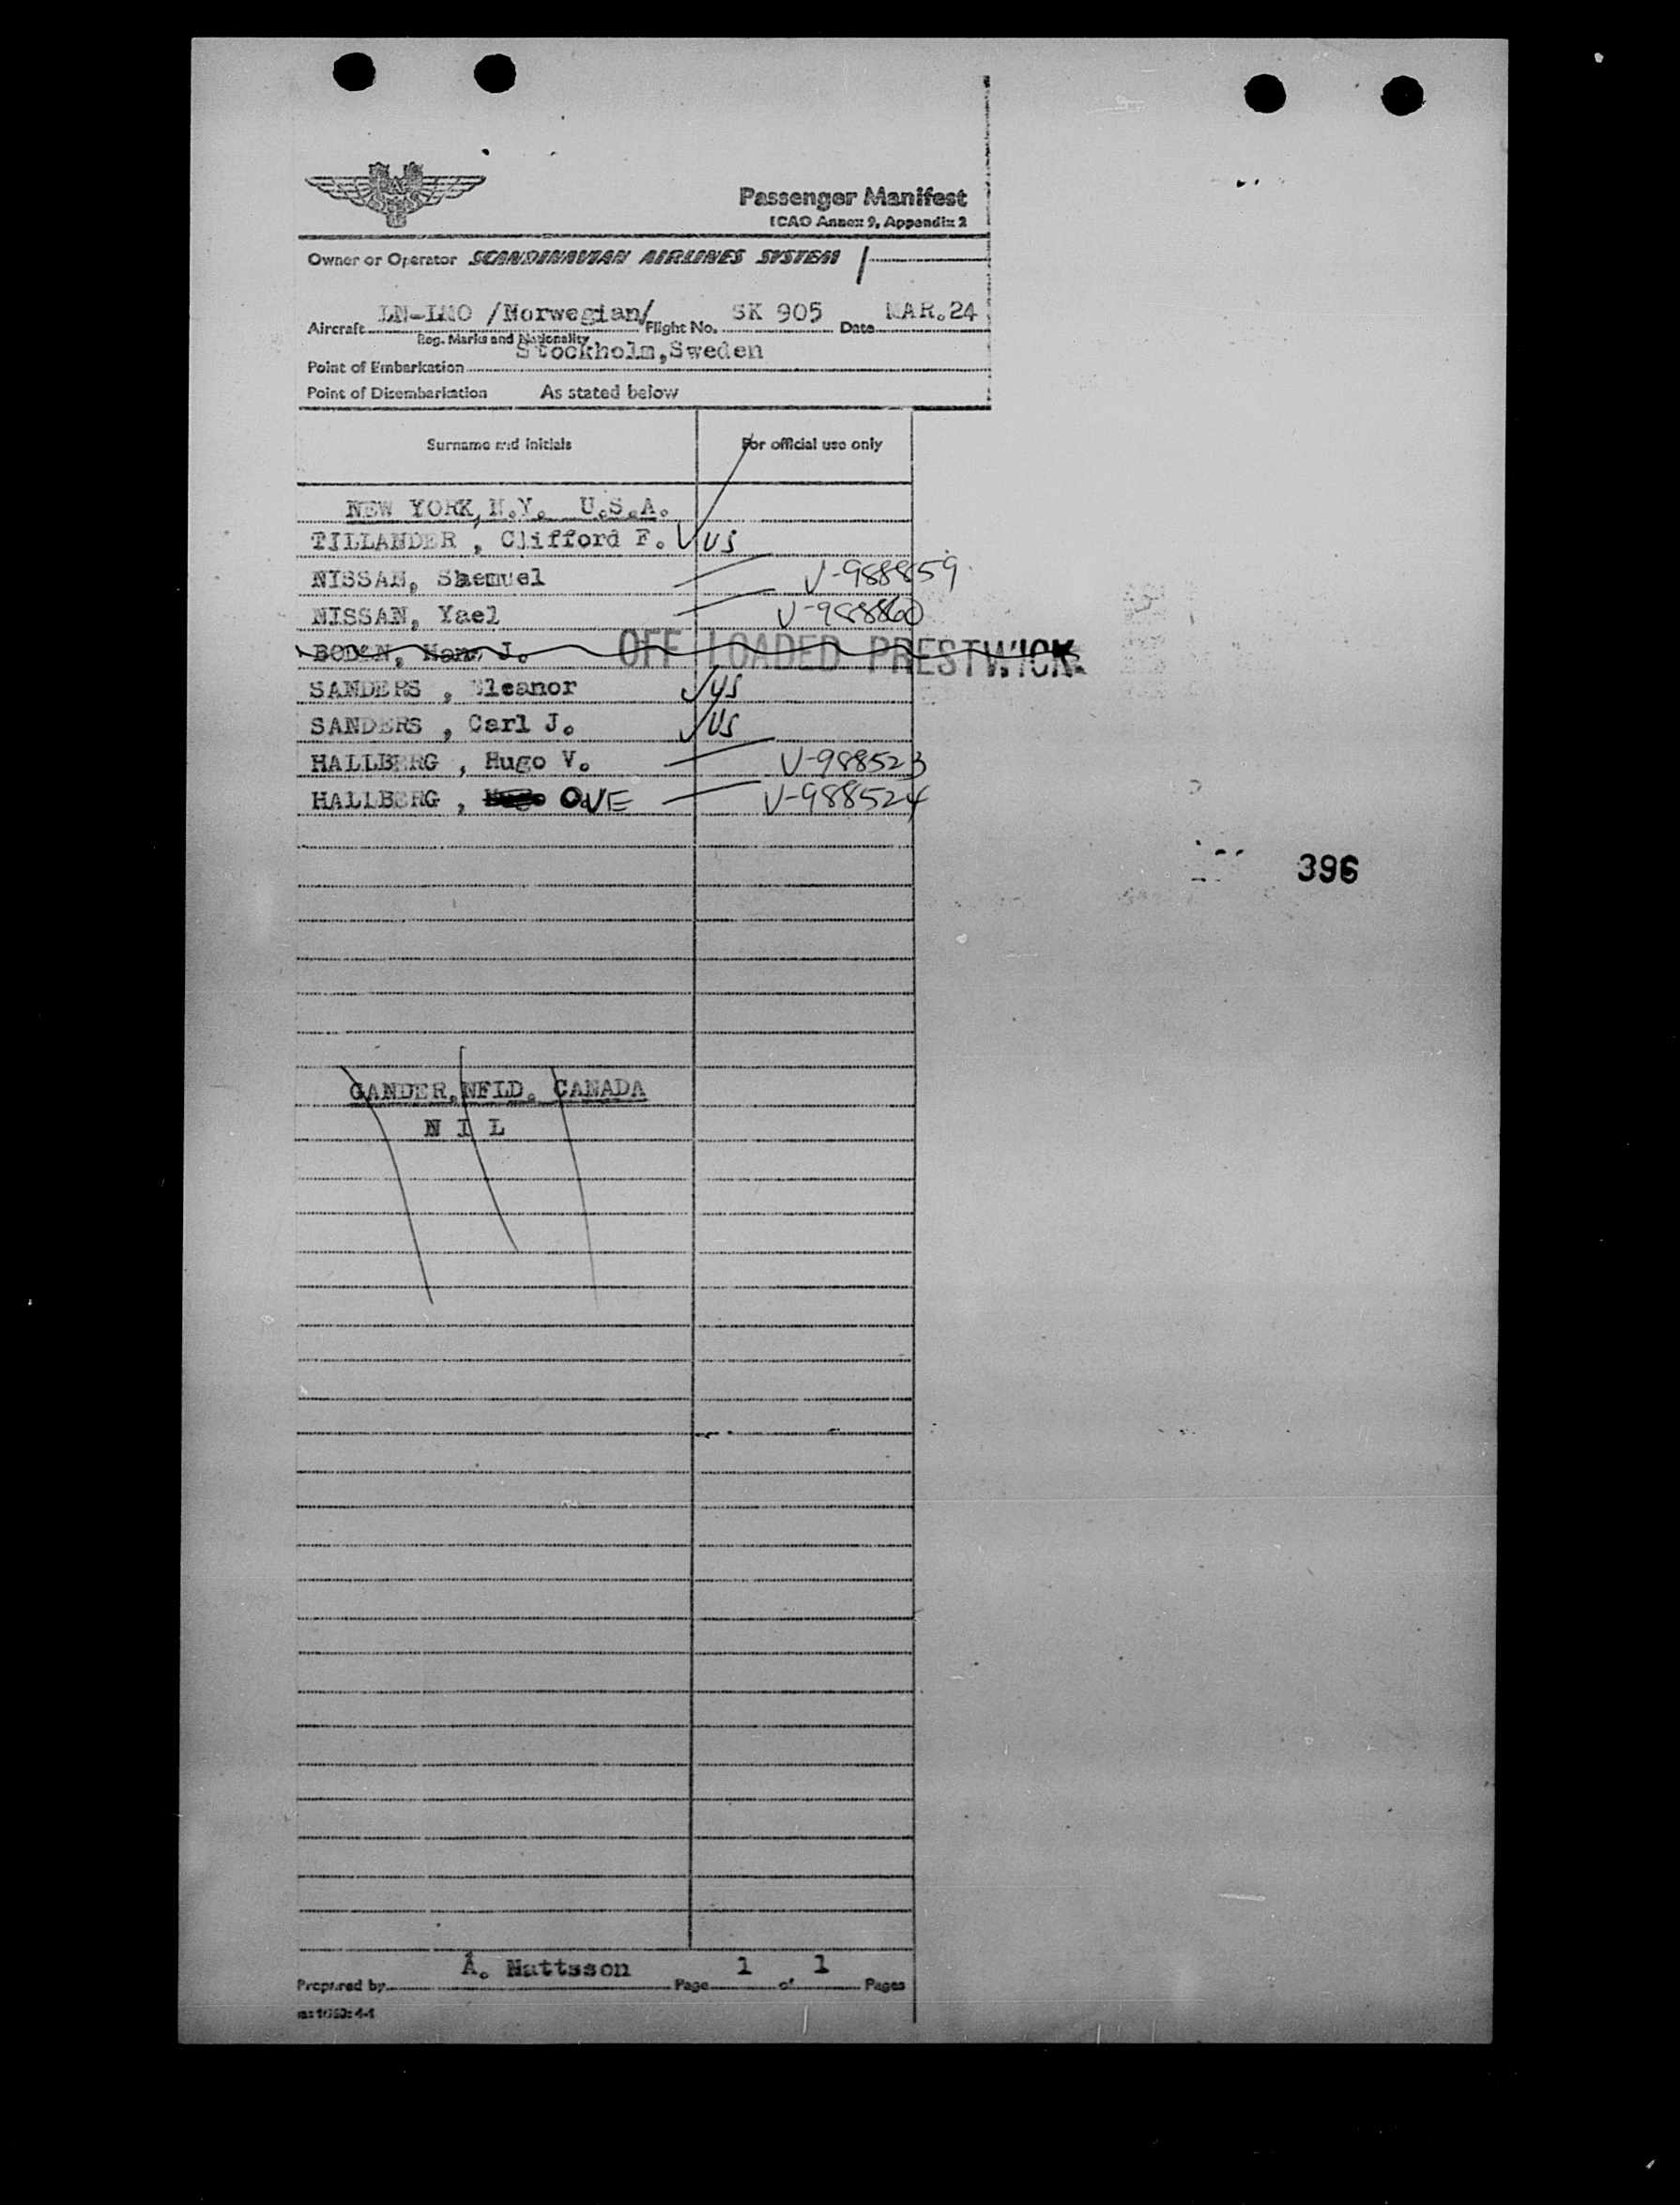 SAS
Passenger Manifest
ICAO Annex 9, Appendix 2
Owner or Operator SCANDINAVIAN AIRLINES SYSTEM
Aircraft LN-LMO /Norwegian/ Flight No. SK 905 Date MAR.24
Reg. Marks and Nationality
Stockholm,Sweden
Point of Embarkation
Point of Disembarkation As stated below
Surname and initials For official use only
NEW YORK, N.Y. U.S.A.
TILLANDER , Clifford F. US
NISSAN, Shemuel V-988859
NISSAN, Yael V-988860
BODEN, J. OFF LOADED PRESTWICK.
SANDERS , Eleanor US
SANDERS , Carl J. US
HALLBERG , Hugo V. V-988523
HALLBERG , OVE V-988524
396
GANDER, NFLD. CANADA
N I L
Prepared by Å. Mattsson Page 1 of 1 Pages